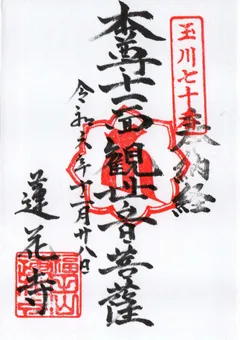 玉川七十番
奉納経
本尊十一面観世音菩薩
令和六年十二月廿八日
蓮花寺